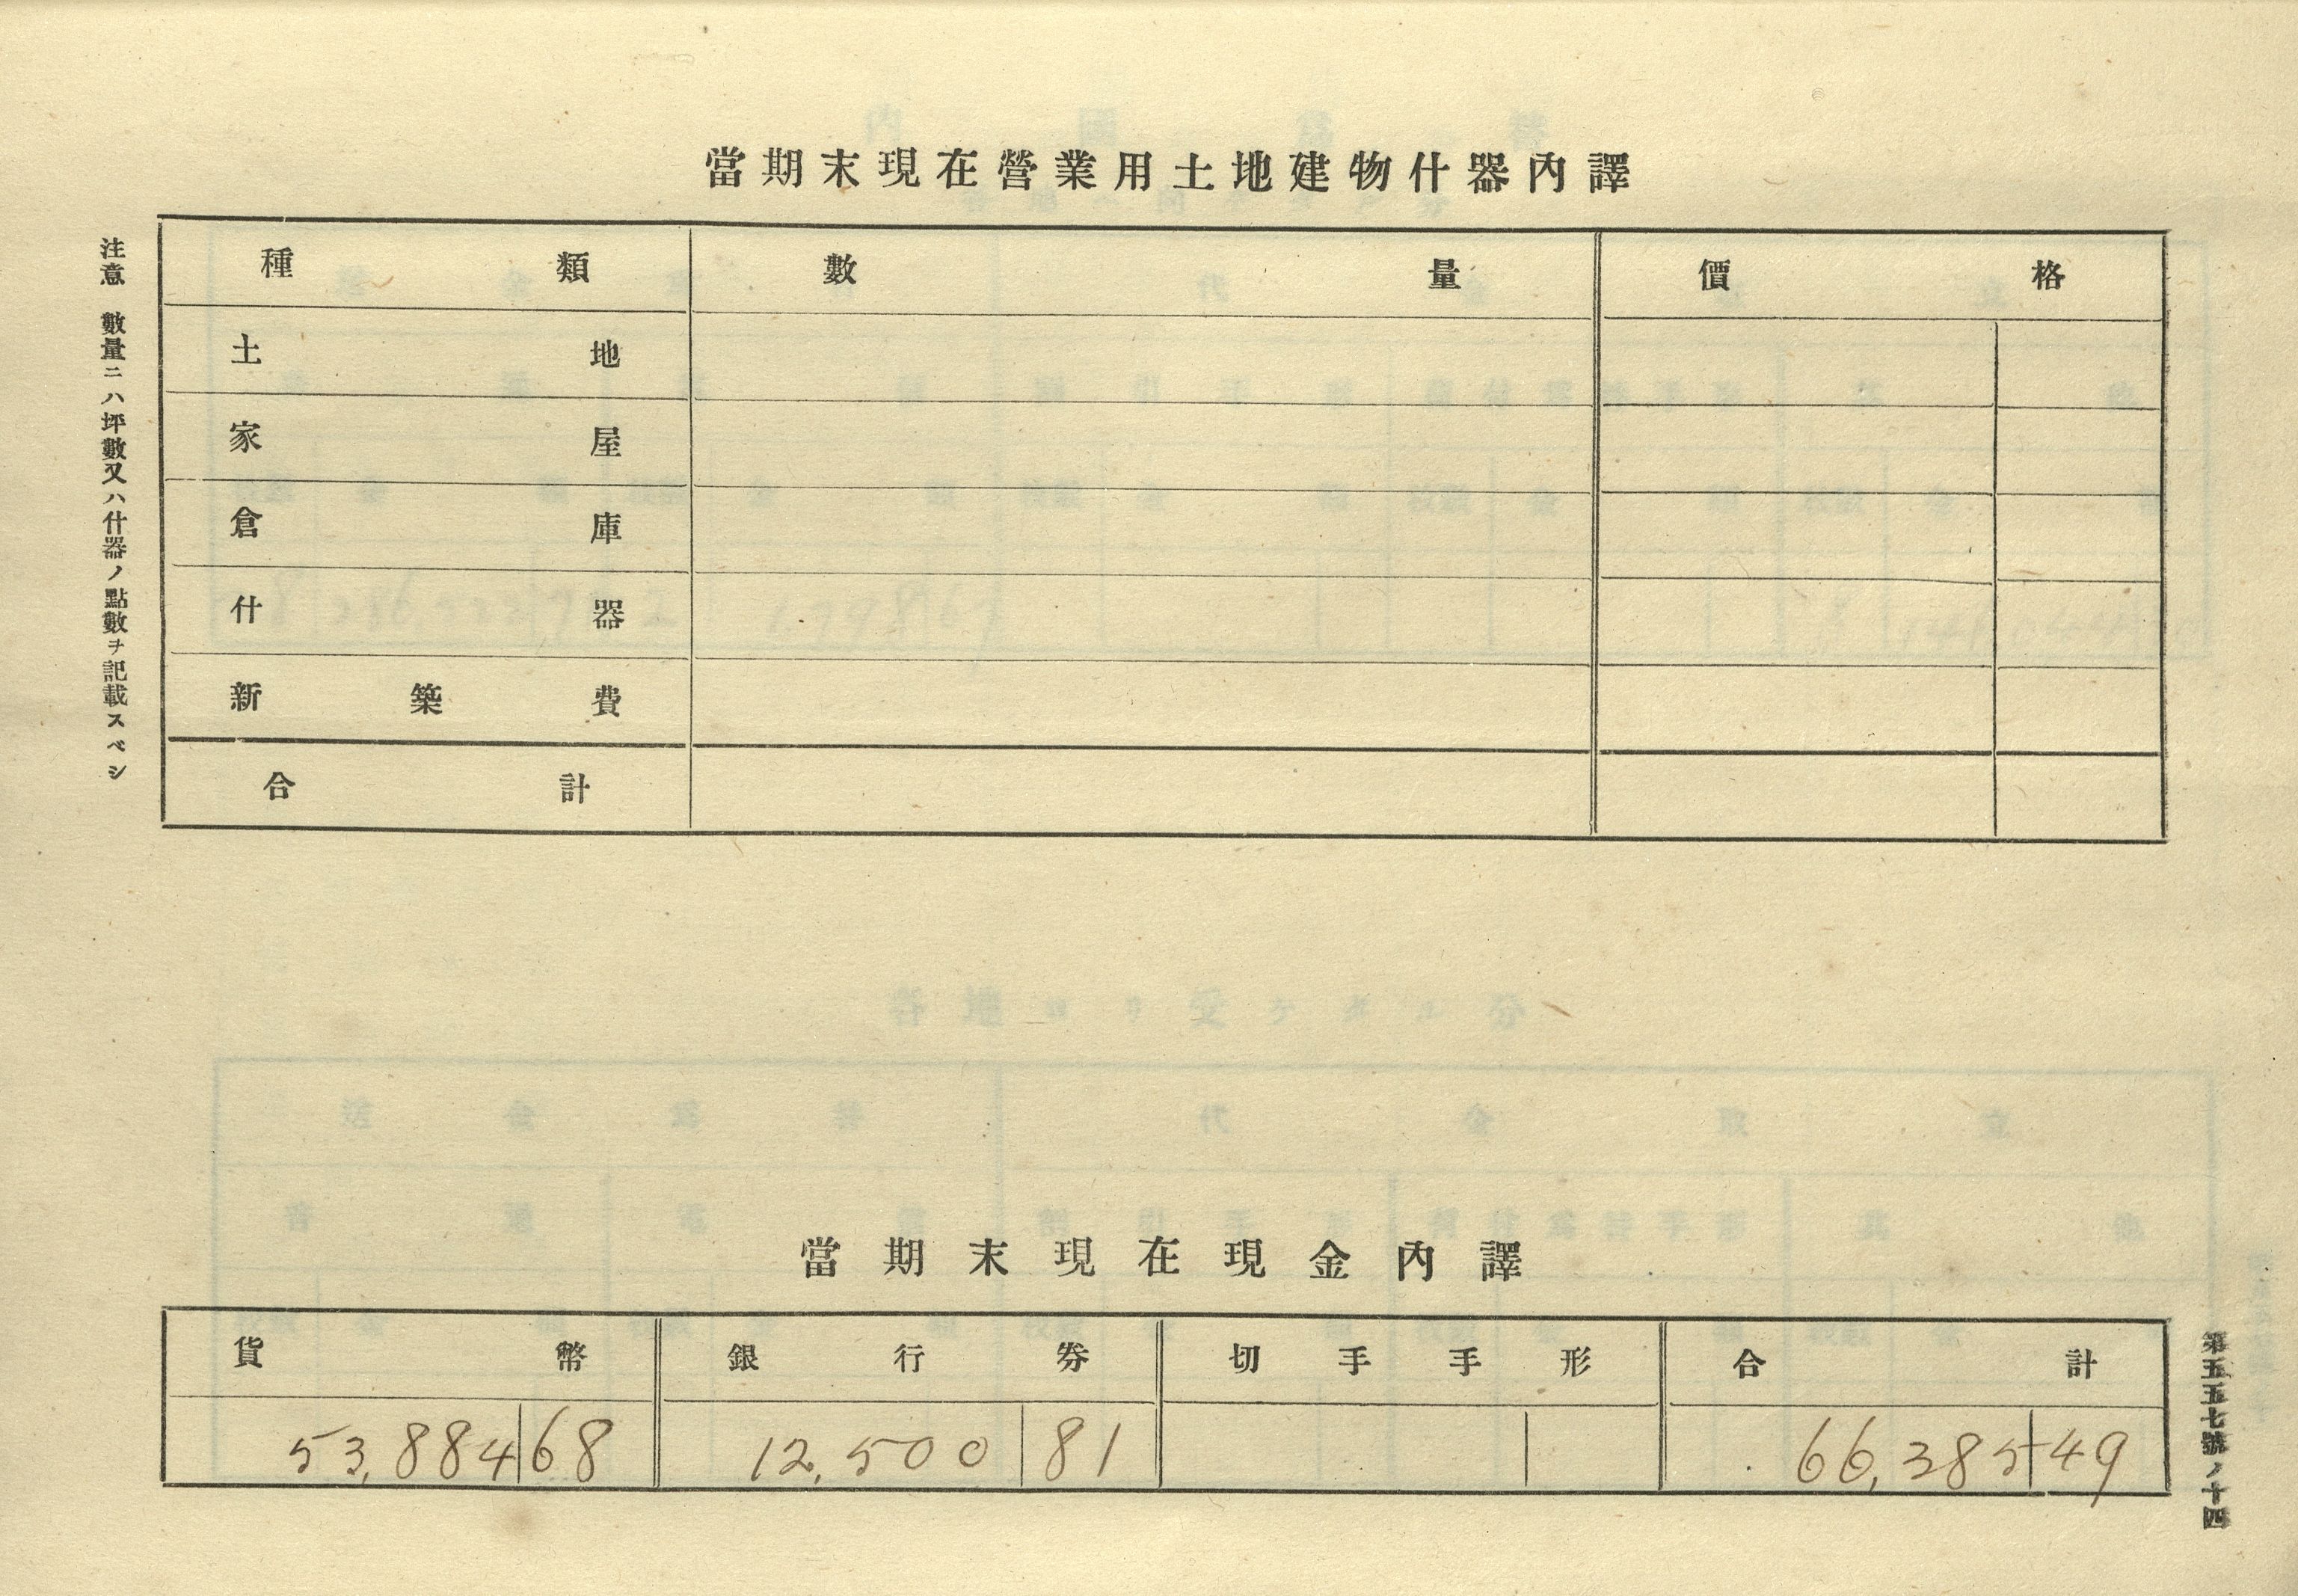 當期末現在營業用土地建物什器內譯
種類 數量 價格
土地
家屋
倉庫
什器
新築費
合計
注意 數量ニハ坪數又ハ什器ノ點數ヲ記載スベシ
當期末現在現金內譯
貨幣 銀行券 切手手形 合計
53,884 68 12,500 81 66,385 49
第五五七號ノ十四